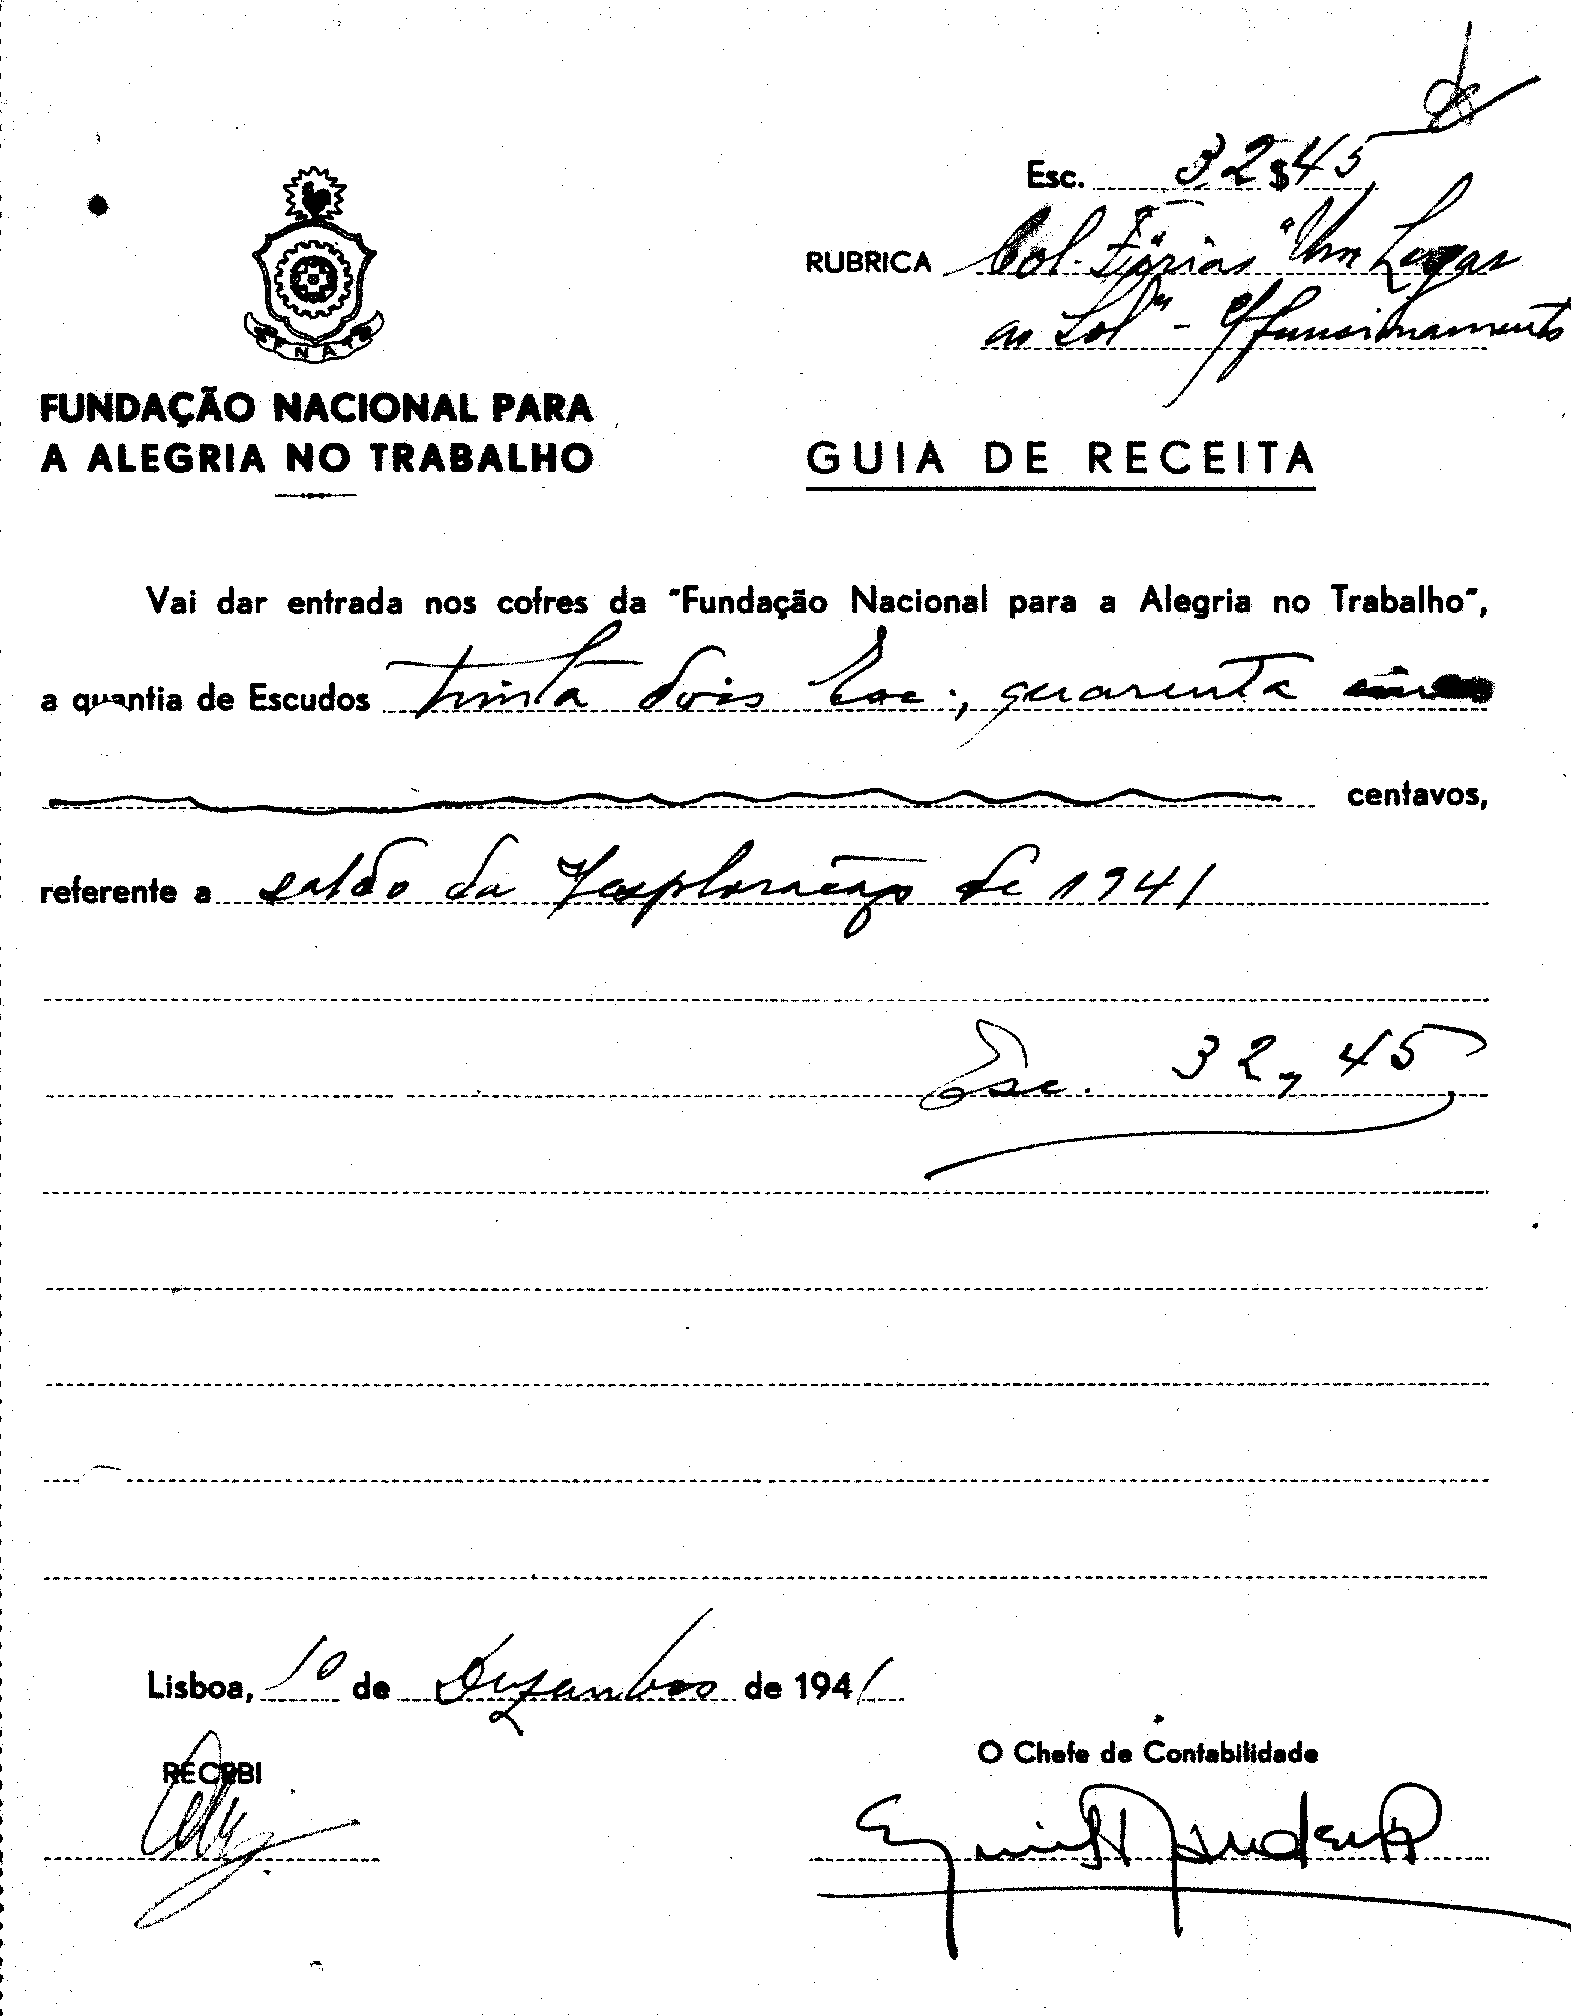 Esc. 32$45
RUBRICA Col. Férias "Um Lugar
ao Sol" - c/funcionamento
FNAT
FUNDAÇÃO NACIONAL PARA
A ALEGRIA NO TRABALHO
GUIA DE RECEITA
Vai dar entrada nos cofres da "Fundação Nacional para a Alegria no Trabalho",
a quantia de Escudos trinta dois Esc., quarenta cinco
centavos,
referente a saldo da exploração de 1941
Esc. 32,45
Lisboa, 10 de Dezembro de 1941
RECEBI
O Chefe de Contabilidade